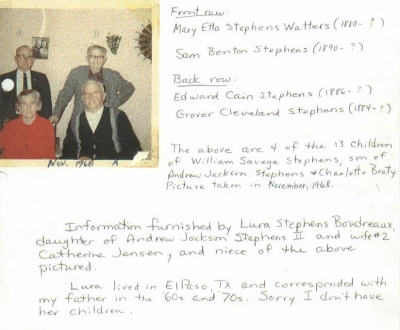 Front row:
Mary Etta Stephens Watters (1880- ?)
Sam Benton Stephens (1890- ?)
Back row:
Edward Cain Stephens (1886- ?)
Grover Cleveland Stephens (1884-?)
The above are 4 of the 13 children
of William Savage Stephens, son of
Andrew Jackson Stephens & Charlotte Beaty
Picture taken in November, 1968.
NOV. 1968 A
Information furnished by Lura Stephens Boudreaux,
daughter of Andrew Jackson Stephens II and wife #2
Catherine Jensen, and niece of the above
pictured.
Lura lived in El Paso, TX and corresponded with
my father in the '60s and '70s. Sorry I don't have
her children.